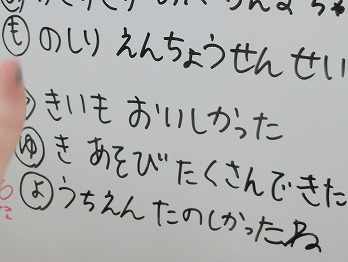 も のしり えんちょうせんせい
きいも おいしかった
ゆ き あそび たくさんできた
よ うちえん たのしかったね